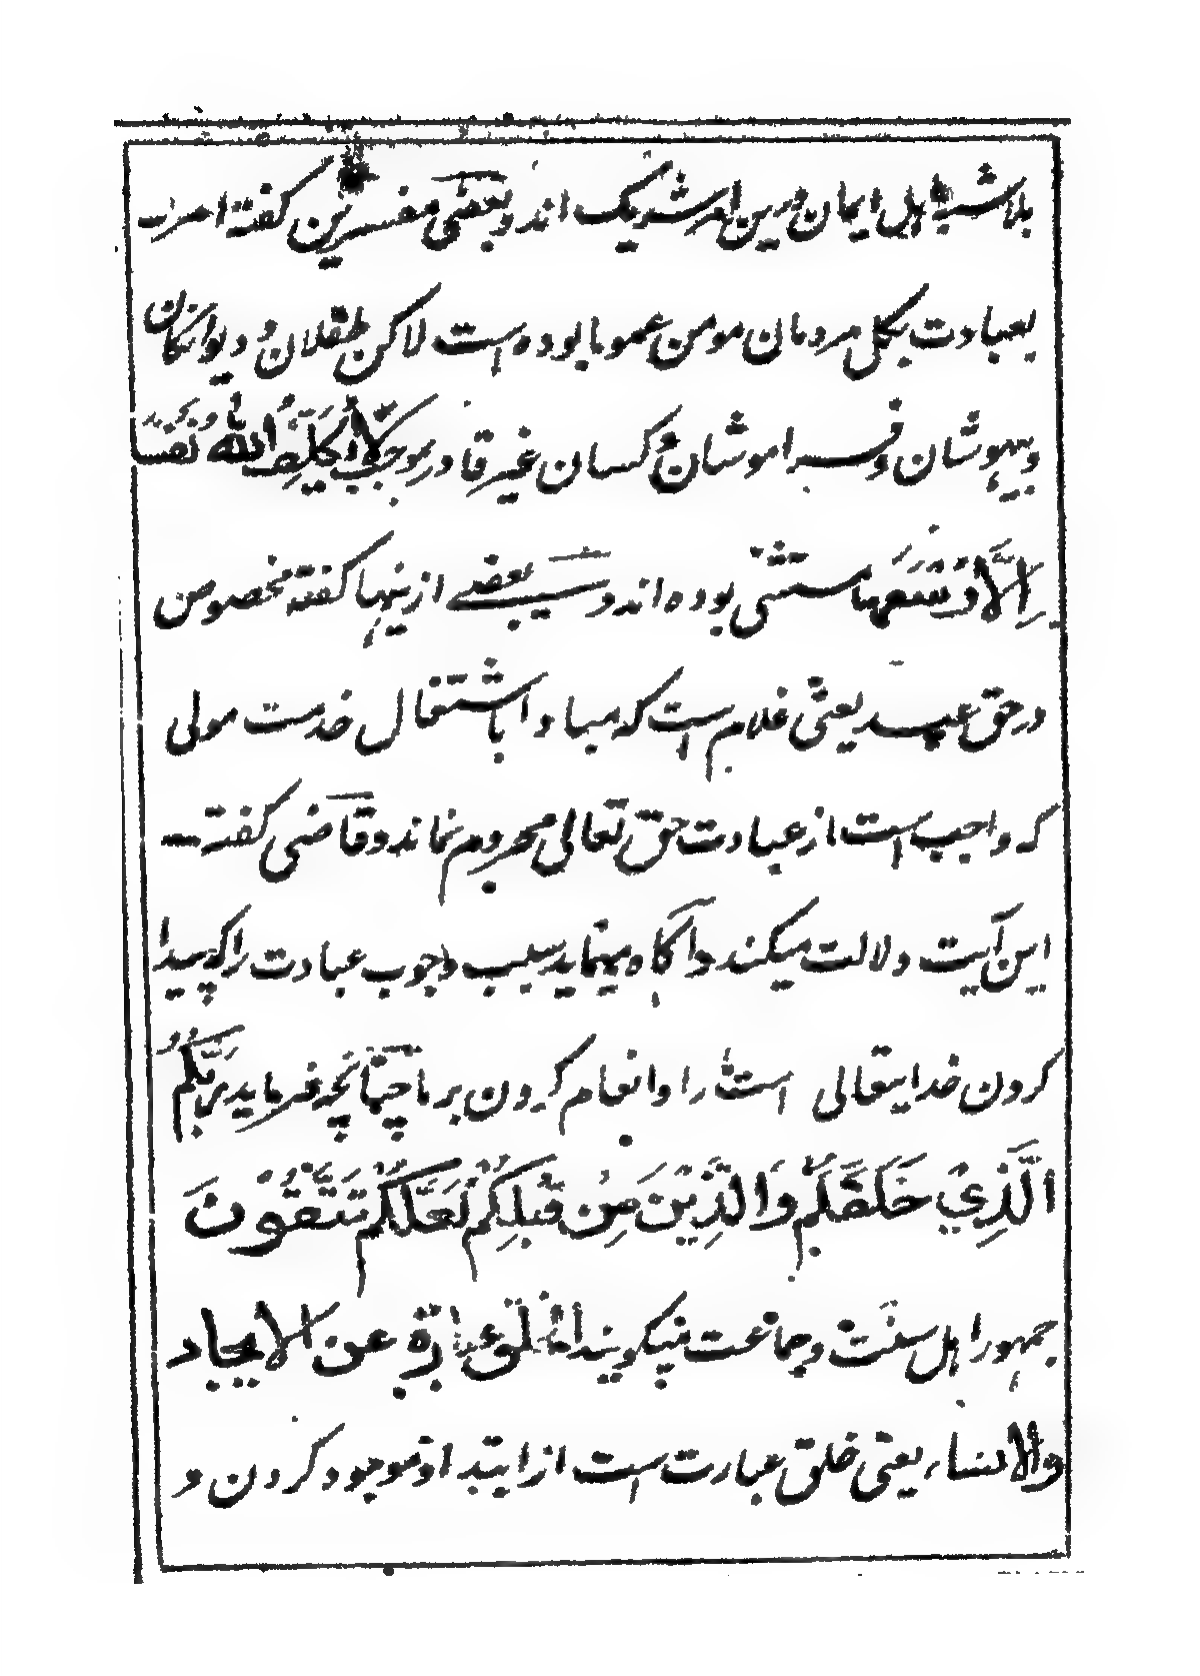 بلاشبه اهل ایمان درین امر شریک اند و بعضی مفسرین گفته امرت
بعبادت بکل مردمان مومن عموما بوده است لاکن طفلان و دیوانکان
و بیهوشان و فراموشان و کسان غیر قادر بموجب لَا یُکَلِّفُ اللهُ نَفْسًا
اِلَّا وُسْعَهَا مستثنی بوده اند و سبب بعضے ازینها گفته مخصوص
در حق عبد یعنی غلام است که مبادا باشتغال خدمت مولی
که واجب است از عبادت حق تعالی محروم نماند و قاضی گفته
این آیت دلالت میکند و آگاه مینماید سبب وجوب عبادت را که پیدا
کردن خدایتعالی است را و انعام کردن بر ما چنانچه فرماید رَبَّکُمُ
الَّذِیْ خَلَقَکُمْ وَالَّذِیْنَ مِنْ قَبْلِکُمْ لَعَلَّکُمْ تَتَّقُوْنَ
جمهور اهل سنت و جماعت میگویند الخلق عبارة عن الایجاد
والانشاء یعنی خلق عبارت است از ابتداء موجود کردن و